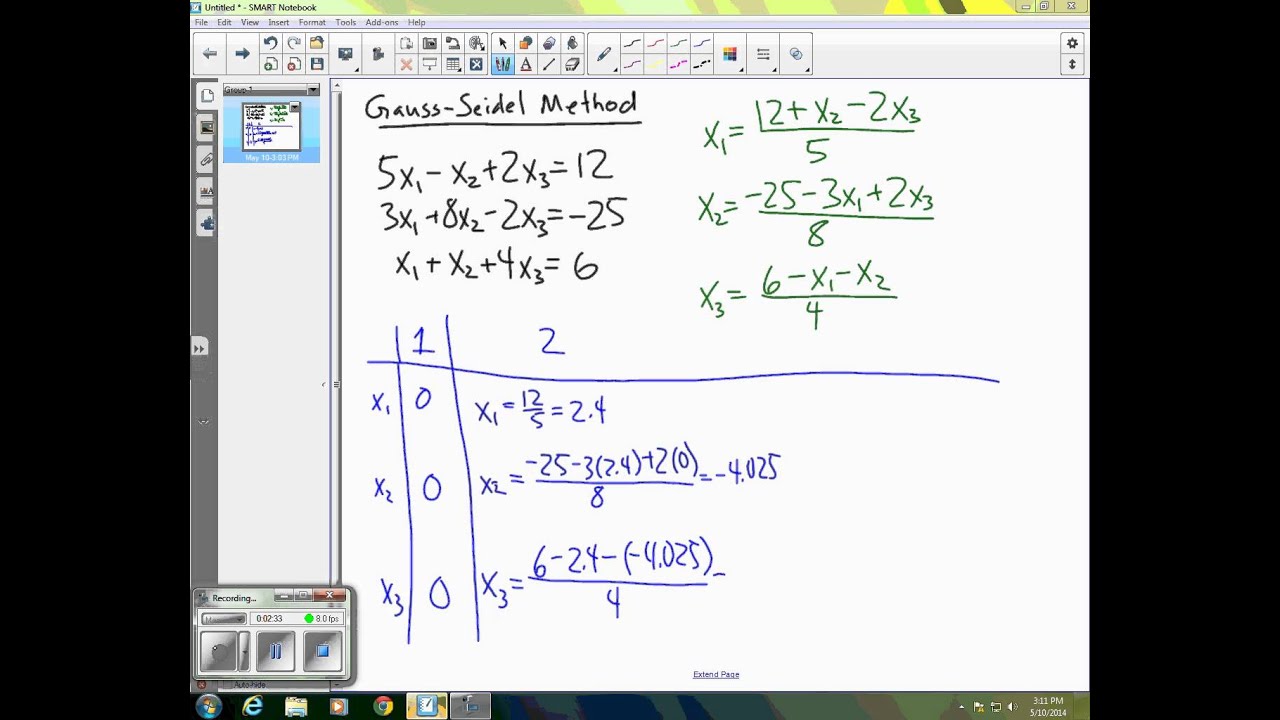 Untitled * - SMART Notebook
File Edit View Insert Format Tools Add-ons Help
Group 1
May 10-3:03 PM
Gauss-Seidel Method
5x₁ - x₂ + 2x₃ = 12
3x₁ + 8x₂ - 2x₃ = -25
x₁ + x₂ + 4x₃ = 6
x₁ = (12 + x₂ - 2x₃)/5
x₂ = (-25 - 3x₁ + 2x₃)/8
x₃ = (6 - x₁ - x₂)/4
1 2
x₁ 0 x₁ = 12/5 = 2.4
x₂ 0 x₂ = (-25 - 3(2.4) + 2(0))/8 = -4.025
x₃ 0 x₃ = (6 - 2.4 - (-4.025))/4 =
Recording...
0:02:33 8.0 fps
Extend Page
Auto-hide
3:11 PM
5/10/2014